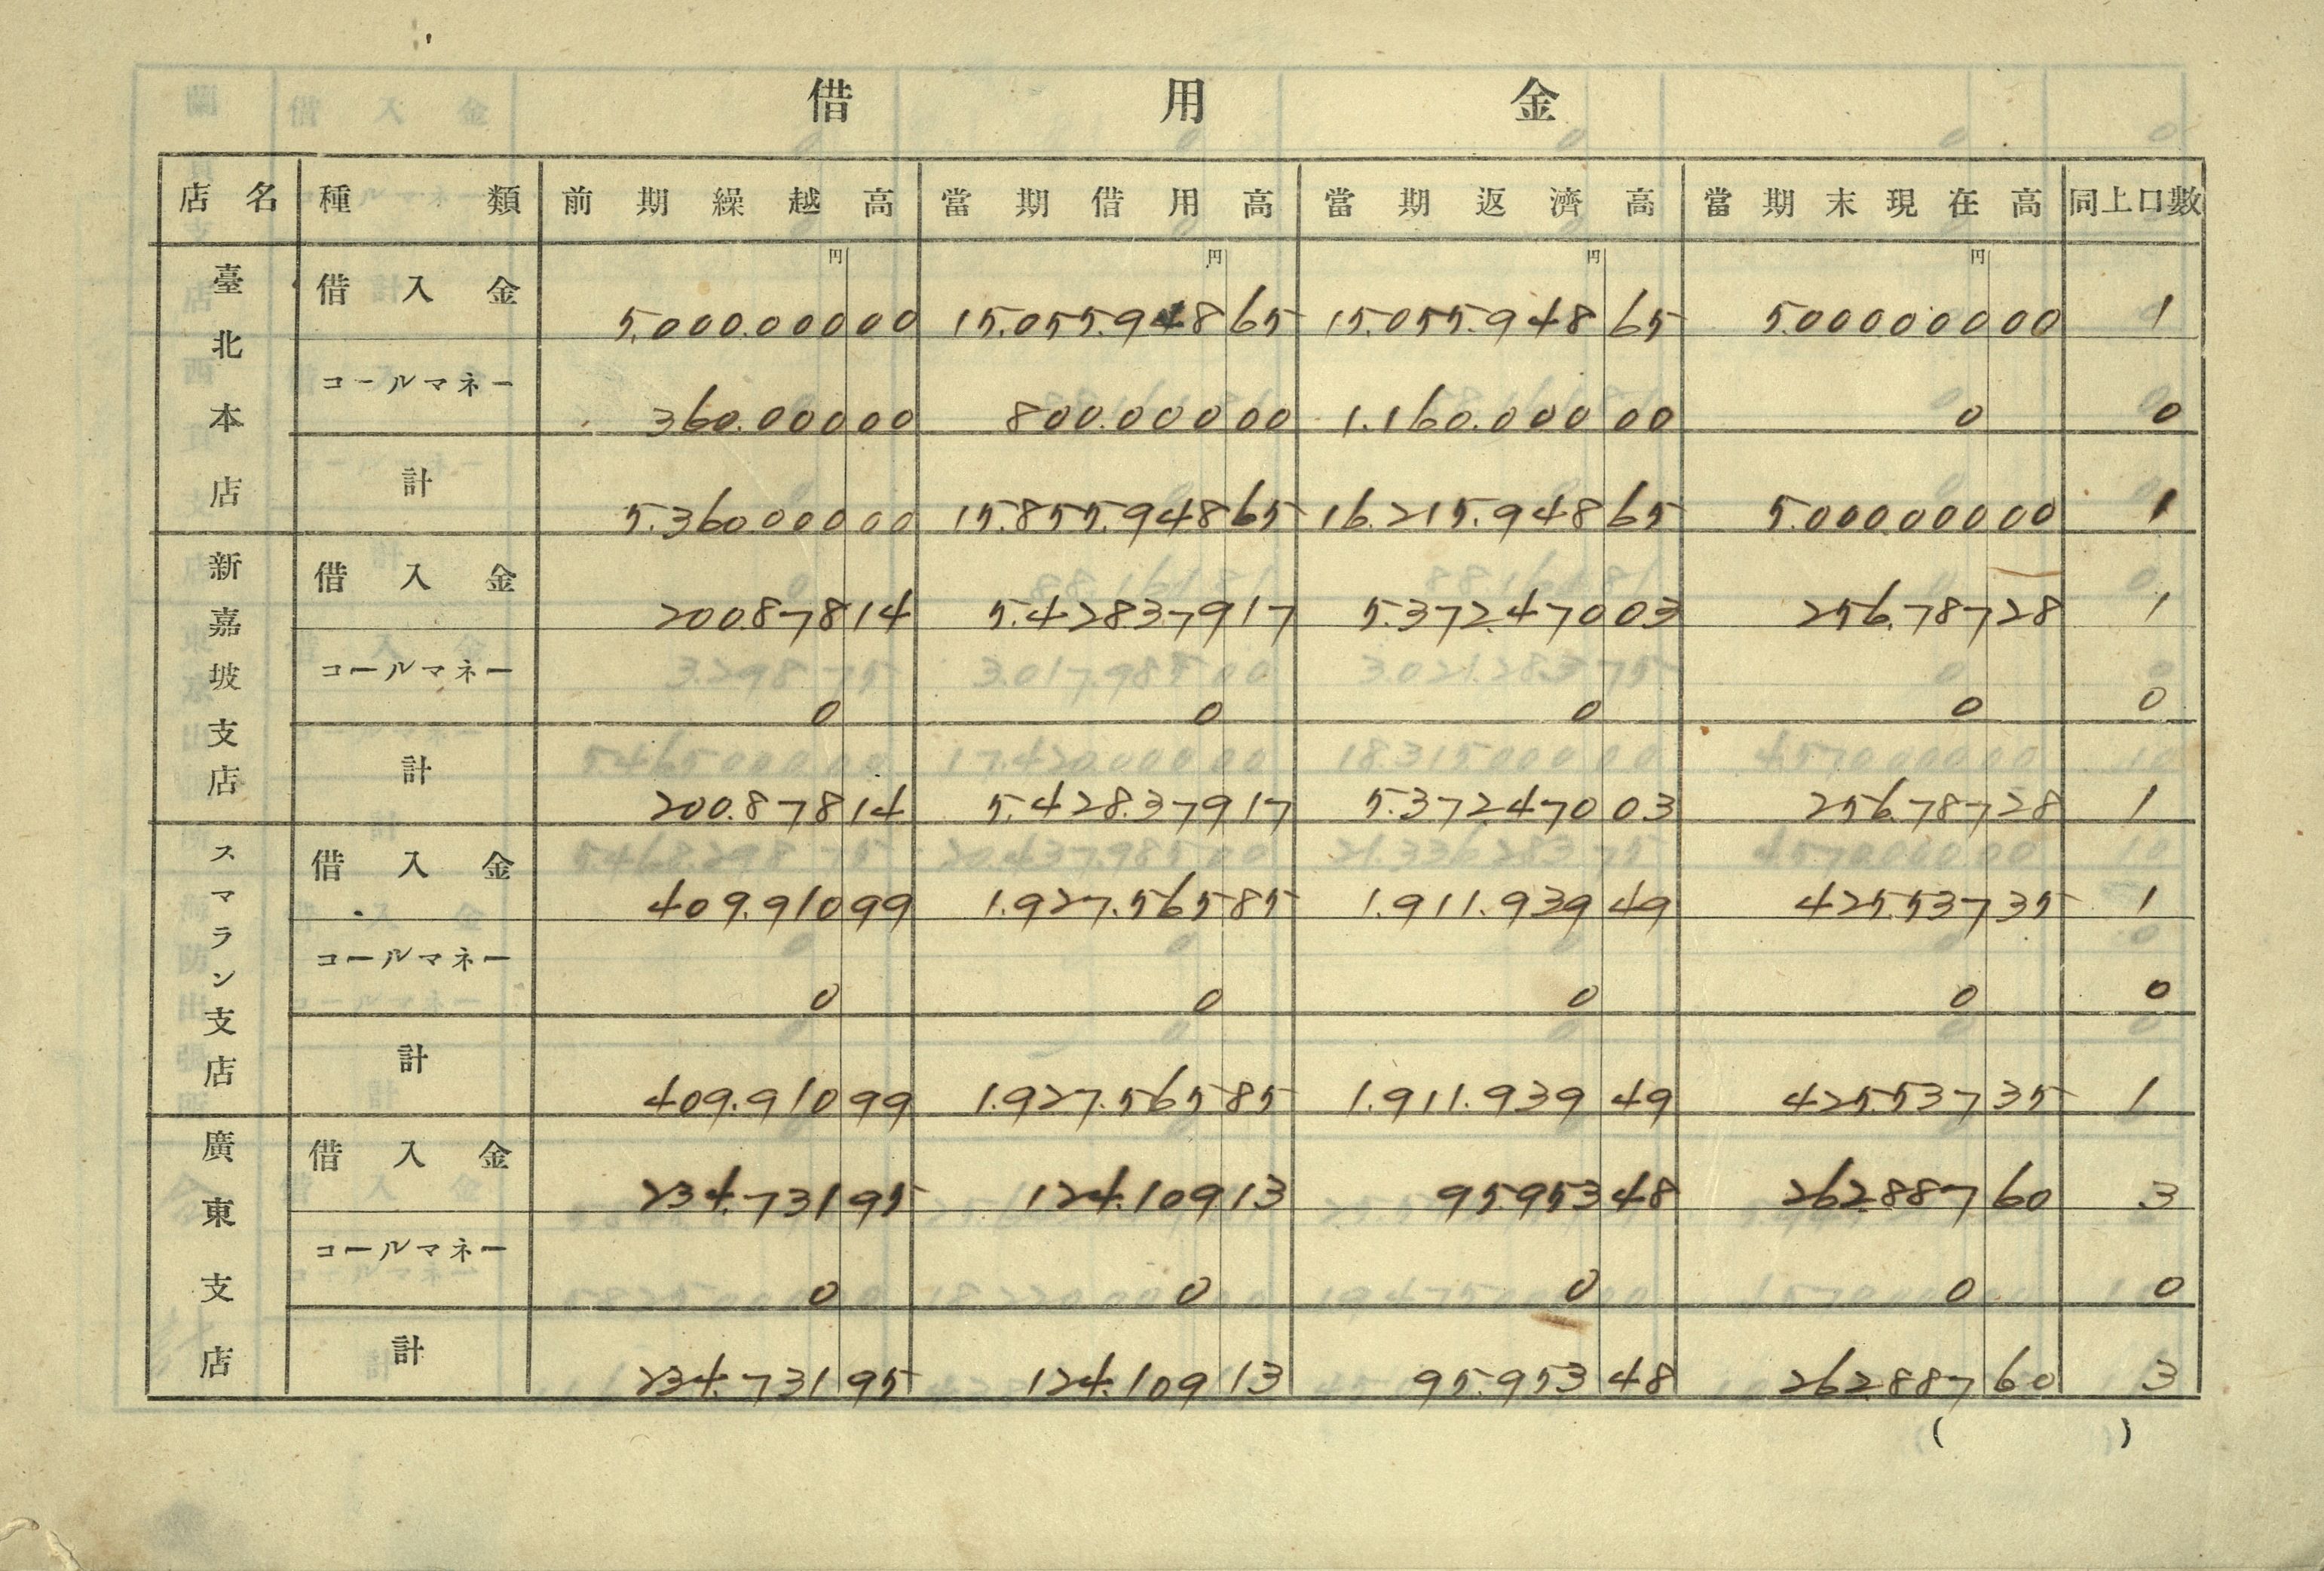 借用金
店名 種類 前期繰越高 當期借用高 當期返濟高 當期末現在高 同上口數
円 円 円 円
臺北本店 借入金 5.000.000 00 15.055.948 65 15.055.948 65 5.000.000 00 1
コールマネー 360.000 00 800.000 00 1.160.000 00 0 0
計 5.360.000 00 15.855.948 65 16.215.948 65 5.000.000 00 1
新嘉坡支店 借入金 200.878 14 5.428.379 17 5.372.470 03 256.787 28 1
コールマネー 0 0 0 0 0
計 200.878 14 5.428.379 17 5.372.470 03 256.787 28 1
スマラン支店 借入金 409.910 99 1.927.565 85 1.911.939 49 425.537 35 1
コールマネー 0 0 0 0 0
計 409.910 99 1.927.565 85 1.911.939 49 425.537 35 1
廣東支店 借入金 234.731 95 124.109 13 95.953 48 262.887 60 3
コールマネー 0 0 0 0 0
計 234.731 95 124.109 13 95.953 48 262.887 60 3
( )